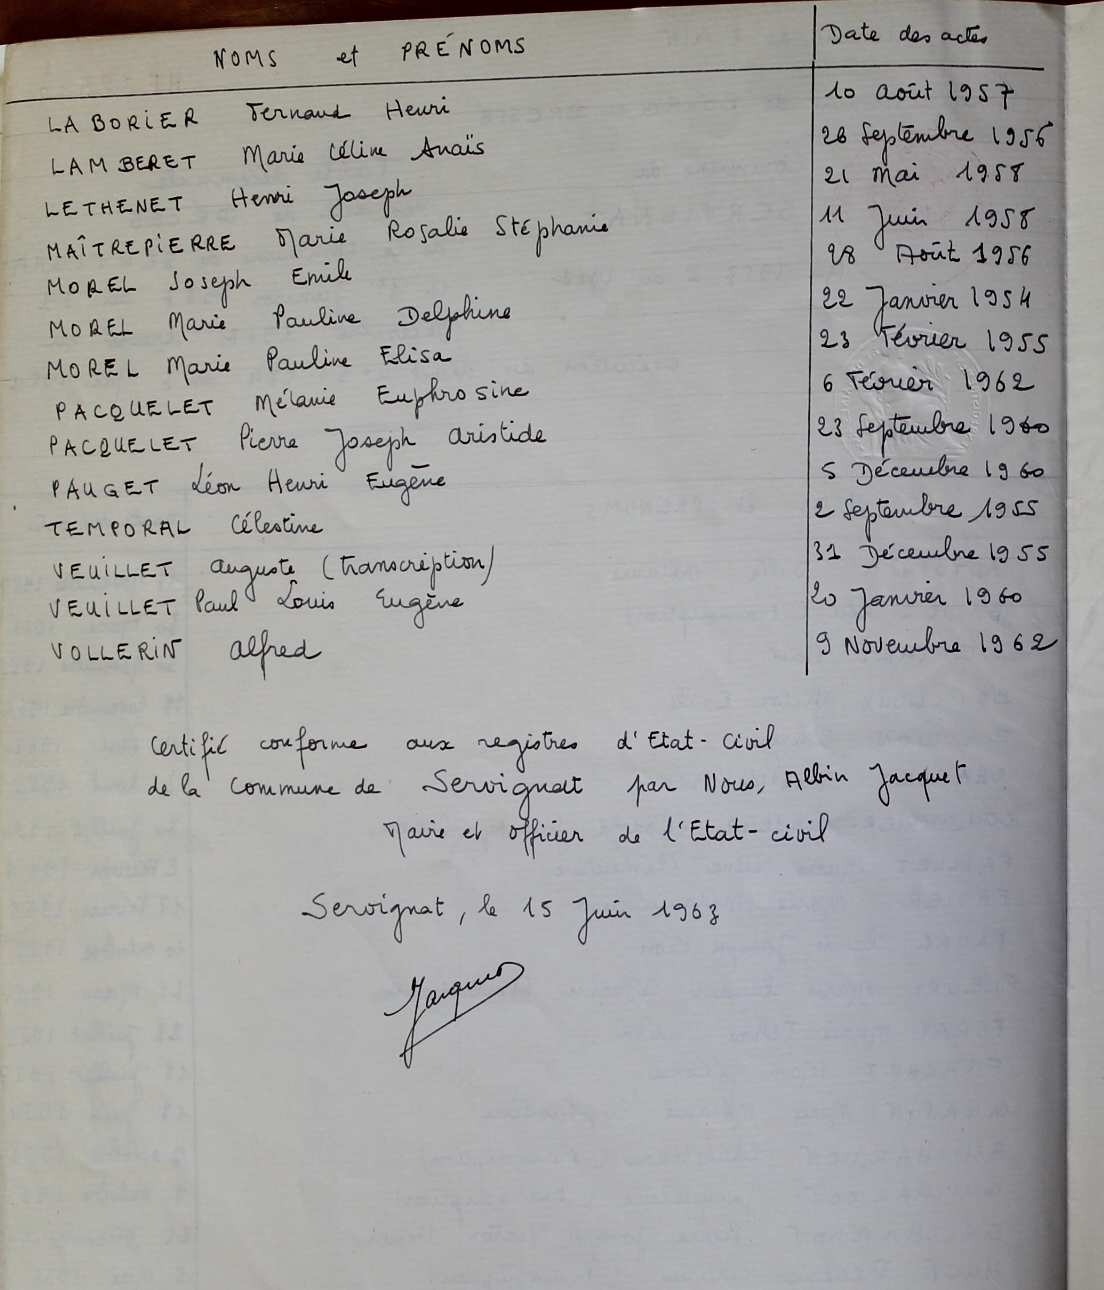 NOMS et PRÉNOMS Date des actes
LABORIER Fernand Henri 10 août 1957
LAMBERET Marie Céline Anaïs 28 Septembre 1956
LETHENET Henri Joseph 21 Mai 1958
MAÎTREPIERRE Marie Rosalie Stéphanie 11 Juin 1958
MOREL Joseph Emile 28 Août 1956
MOREL Marie Pauline Delphine 22 Janvier 1954
MOREL Marie Pauline Elisa 23 Février 1955
PACQUELET Mélanie Euphrosine 6 Février 1962
PACQUELET Pierre Joseph Aristide 23 Septembre 1960
PAUGET Léon Henri Eugène 5 Décembre 1960
TEMPORAL Célestine 2 Septembre 1955
VEUILLET Auguste (transcription) 31 Décembre 1955
VEUILLET Paul Louis Eugène 20 Janvier 1960
VOLLERIN Alfred 9 Novembre 1962
Certifié conforme aux registres d'Etat-civil
de la Commune de Servignat par Nous, Albin Jacquet
Maire et officier de l'Etat-civil
Servignat, le 15 Juin 1963